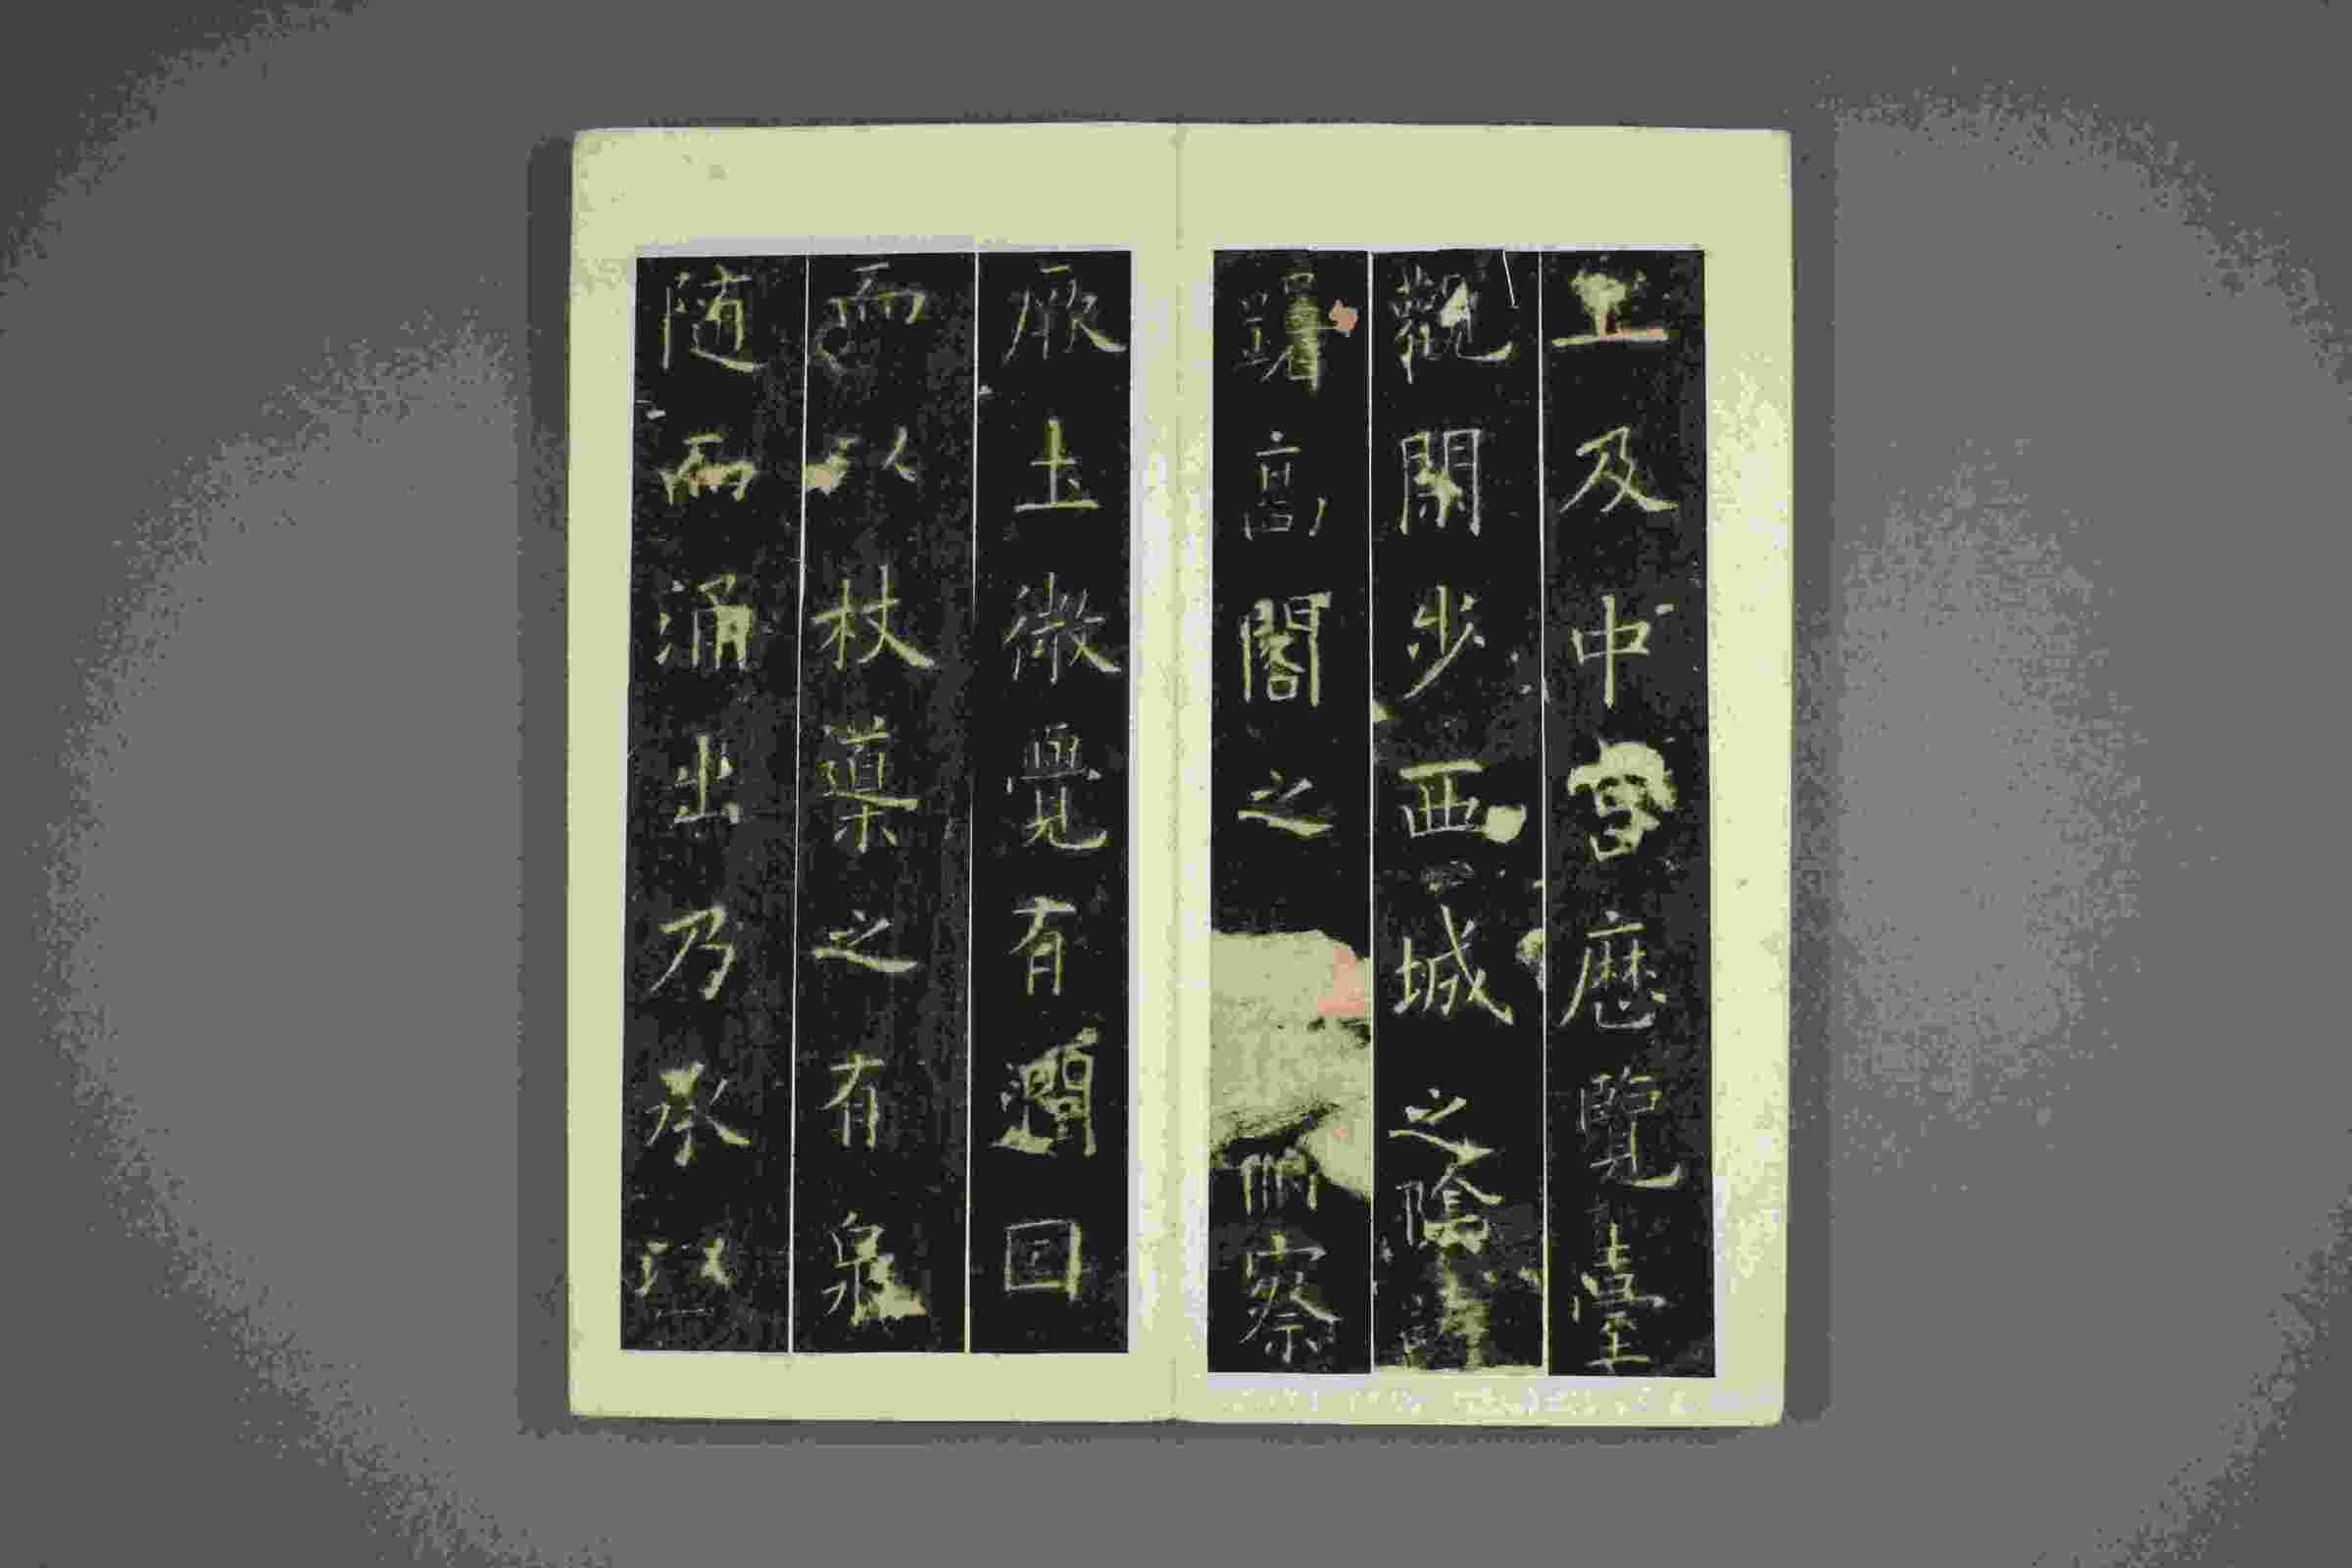 上及中宮歴覽臺
觀閑步西城之陰躊
躇高閣之俯察
厥土微覺有潤因
而以杖導之有泉
随而涌出乃承以